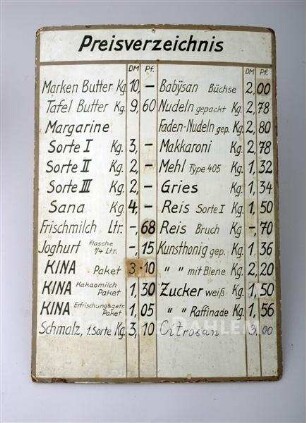 Preisverzeichnis
DM Pf.
Marken Butter Kg. 10,—
Tafel Butter Kg. 9,60
Margarine
Sorte I Kg. 3,—
Sorte II Kg. 2,—
Sorte III Kg. 2,—
Sana Kg. 4,—
Frischmilch Ltr. —,68
Joghurt Flasche 1/4 Ltr. —,15
KINA Paket 3,10
KINA Kakaomilch Paket 1,30
KINA Paket 1,05
Schmalz, 1.Sorte Kg. 3,10
DM Pf.
Babysan Büchse 2,00
Nudeln gepackt Kg. 2,78
Faden-Nudeln gep. Kg. 2,80
Makkaroni Kg. 2,78
Mehl Type 405 Kg. 1,32
Gries Kg. 1,34
Reis Sorte I Kg. 1,50
Reis Bruch Kg. —,70
Kunsthonig gep. Kg. 1,36
" " mit Biene Kg. 2,20
Zucker weiß Kg. 1,50
" " Raffinade Kg. 1,56